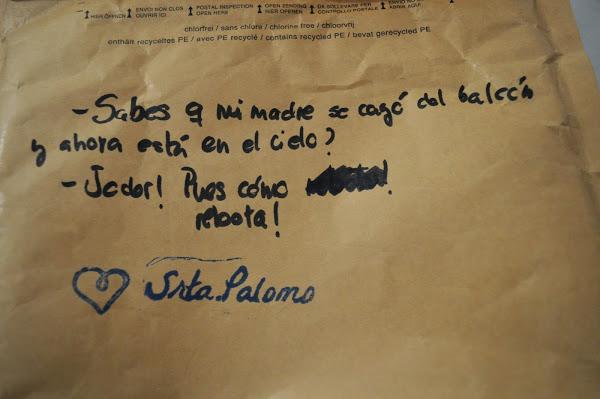 ENVOI BON CLOS POSTAL INSPECTION OPEN ZENDING
HIER ÖFFNEN OUVRIR ICI OPEN HERE HIER OPENEN CONTROLLO POSTALE
chlorfrei / sans chlore / chlorine free / chloorvrij
enthält recyceltes PE / avec PE recyclé / contains recycled PE / bevat gerecycled PE
- Sabes q mi madre se cayó del balcón
y ahora está en el cielo?
- Joder! Pues cómo
rebota!
Srta. Palomo